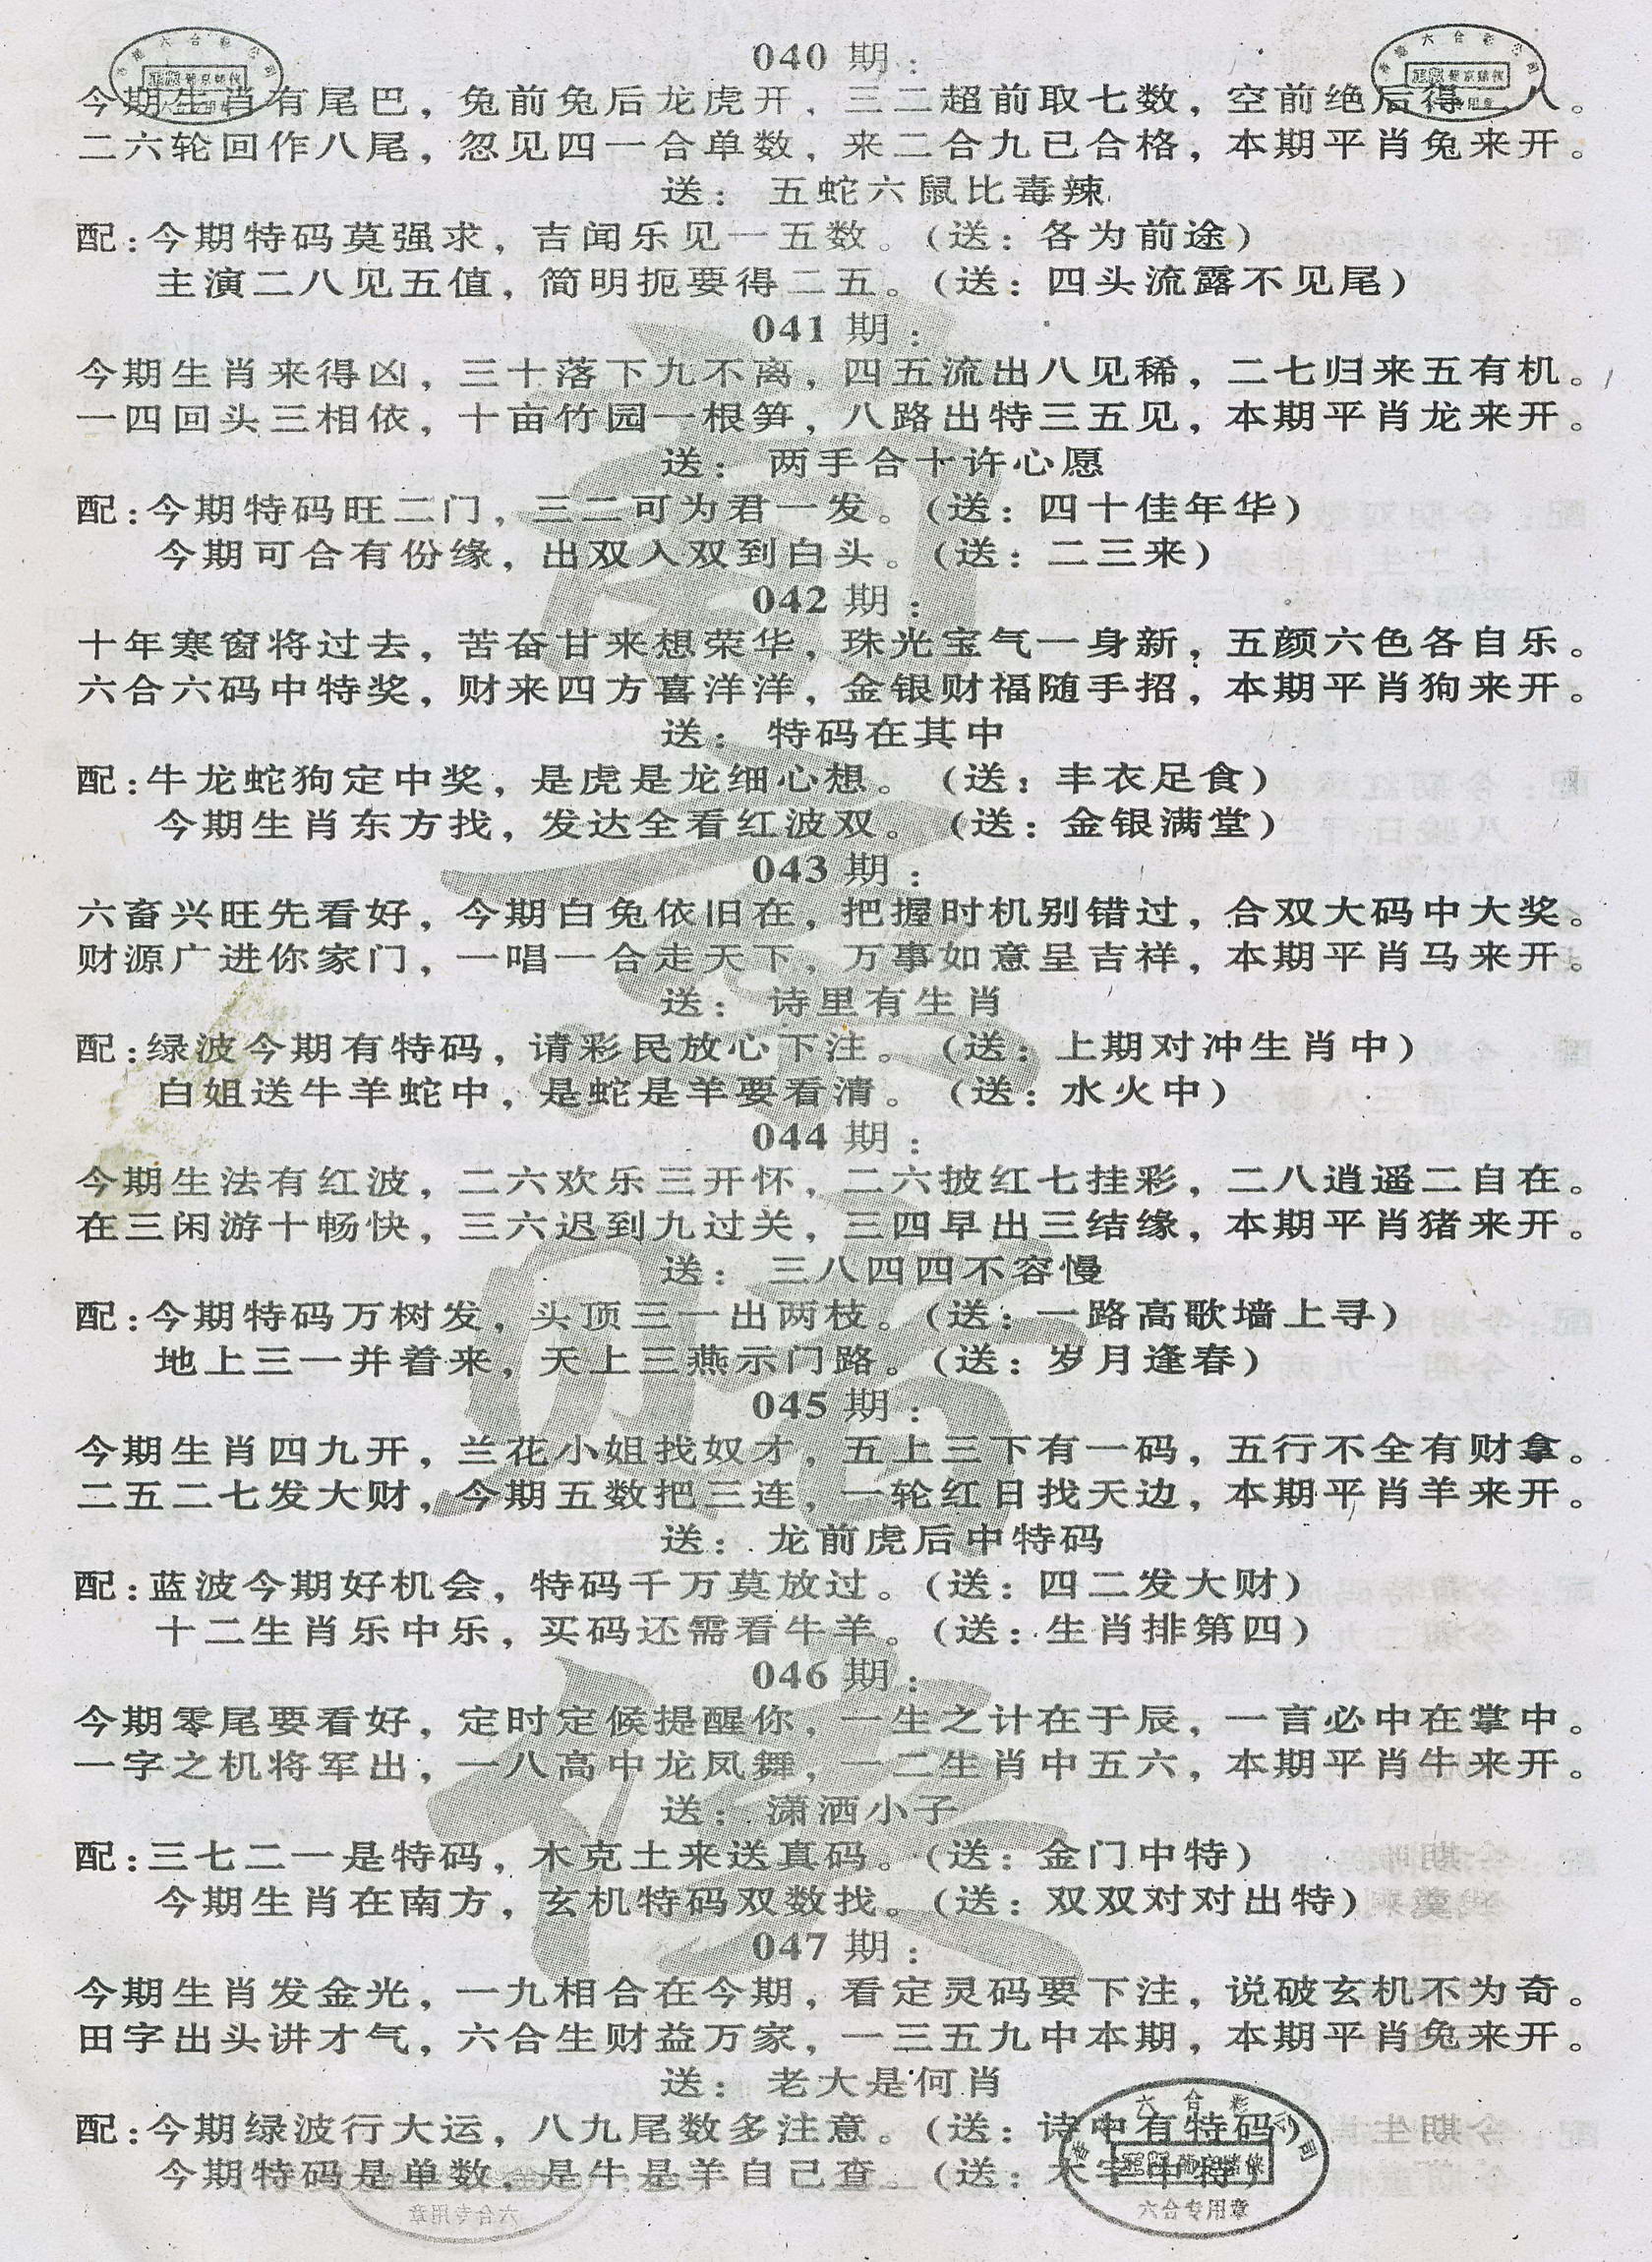 040 期：
今期生肖有尾巴，兔前兔后龙虎开，三二超前取七数，空前绝后得二人。
二六轮回作八尾，忽见四一合单数，来二合九已合格，本期平肖兔来开。
送： 五蛇六鼠比毒辣
配：今期特码莫强求，吉闻乐见一五数。（送：各为前途）
主演二八见五值，简明扼要得二五。（送：四头流露不见尾）
041 期：
今期生肖来得凶，三十落下九不离，四五流出八见稀，二七归来五有机。
一四回头三相依，十亩竹园一根笋，八路出特三五见，本期平肖龙来开。
送： 两手合十许心愿
配：今期特码旺二门，三二可为君一发。（送：四十佳年华）
今期可合有份缘，出双入双到白头。（送：二三来）
042 期：
十年寒窗将过去，苦奋甘来想荣华，珠光宝气一身新，五颜六色各自乐。
六合六码中特奖，财来四方喜洋洋，金银财福随手招，本期平肖狗来开。
送： 特码在其中
配：牛龙蛇狗定中奖，是虎是龙细心想。（送：丰衣足食）
今期生肖东方找，发达全看红波双。（送：金银满堂）
043 期：
六畜兴旺先看好，今期白兔依旧在，把握时机别错过，合双大码中大奖。
财源广进你家门，一唱一合走天下，万事如意呈吉祥，本期平肖马来开。
送： 诗里有生肖
配：绿波今期有特码，请彩民放心下注。（送：上期对冲生肖中）
白姐送牛羊蛇中，是蛇是羊要看清。（送：水火中）
044 期：
今期生法有红波，二六欢乐三开怀，二六披红七挂彩，二八逍遥二自在。
在三闲游十畅快，三六迟到九过关，三四早出三结缘，本期平肖猪来开。
送： 三八四四不容慢
配：今期特码万树发，头顶三一出两枝。（送：一路高歌墙上寻）
地上三一并着来，天上三燕示门路。（送：岁月逢春）
045 期：
今期生肖四九开，兰花小姐找奴才，五上三下有一码，五行不全有财拿。
二五二七发大财，今期五数把三连，一轮红日找天边，本期平肖羊来开。
送： 龙前虎后中特码
配：蓝波今期好机会，特码千万莫放过。（送：四二发大财）
十二生肖乐中乐，买码还需看牛羊。（送：生肖排第四）
046 期：
今期零尾要看好，定时定候提醒你，一生之计在于辰，一言必中在掌中。
一字之机将军出，一八高中龙凤舞，一二生肖中五六，本期平肖牛来开。
送： 潇洒小子
配：三七二一是特码，木克土来送真码。（送：金门中特）
今期生肖在南方，玄机特码双数找。（送：双双对对出特）
047 期：
今期生肖发金光，一九相合在今期，看定灵码要下注，说破玄机不为奇。
田字出头讲才气，六合生财益万家，一三五九中本期，本期平肖兔来开。
送： 老大是何肖
配：今期绿波行大运，八九尾数多注意。（送：诗中有特码）
今期特码是单数，是牛是羊自己查。（送：字中特）
六合专用章